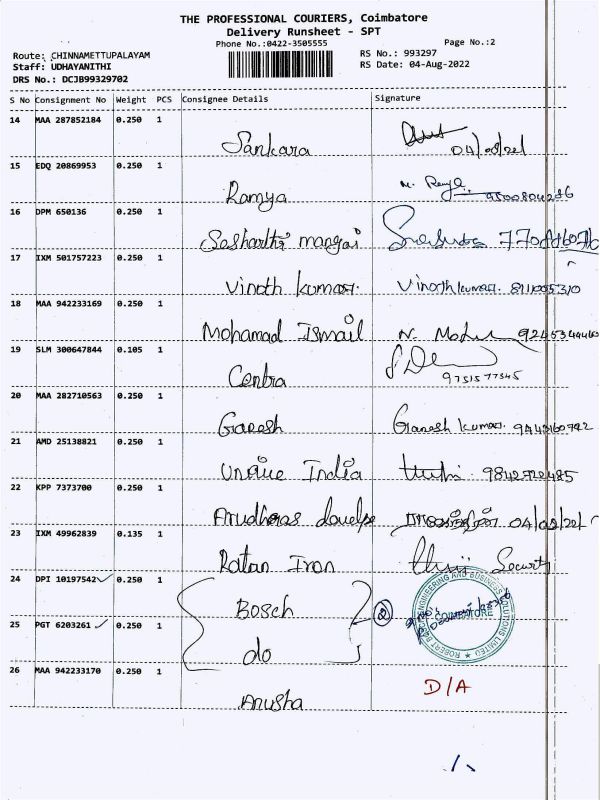 THE PROFESSIONAL COURIERS, Coimbatore
Delivery Runsheet - SPT
Phone No.:0422-3505555 Page No.:2
Route: CHINNAMETTUPALAYAM RS No.: 993297
Staff: UDHAYANITHI RS Date: 04-Aug-2022
DRS No.: DCJB99329702
S No Consignment No Weight PCS Consignee Details Signature
14 MAA 287852184 0.250 1
Sankara 04/08/22
15 EDQ 20869953 0.250 1
Ramya
16 DPM 650136 0.250 1
mangai
17 IXM 501757223 0.250 1
Vinoth kumar. Vinoth kumar.
18 MAA 942233169 0.250 1
Mohamad Ismail
19 SLM 300647844 0.105 1
Centra 9751577345
20 MAA 282710563 0.250 1
Ganesh Ganesh kumar.
21 AMD 25138821 0.250 1
India
22 KPP 7373700 0.250 1
04/08/22
23 IXM 49962839 0.135 1
Ratan Iron Security
24 DPI 10197542 0.250 1
Bosch 2
25 PGT 6203261 0.250 1
do
COIMBATORE
26 MAA 942233170 0.250 1
D/A
Anusha